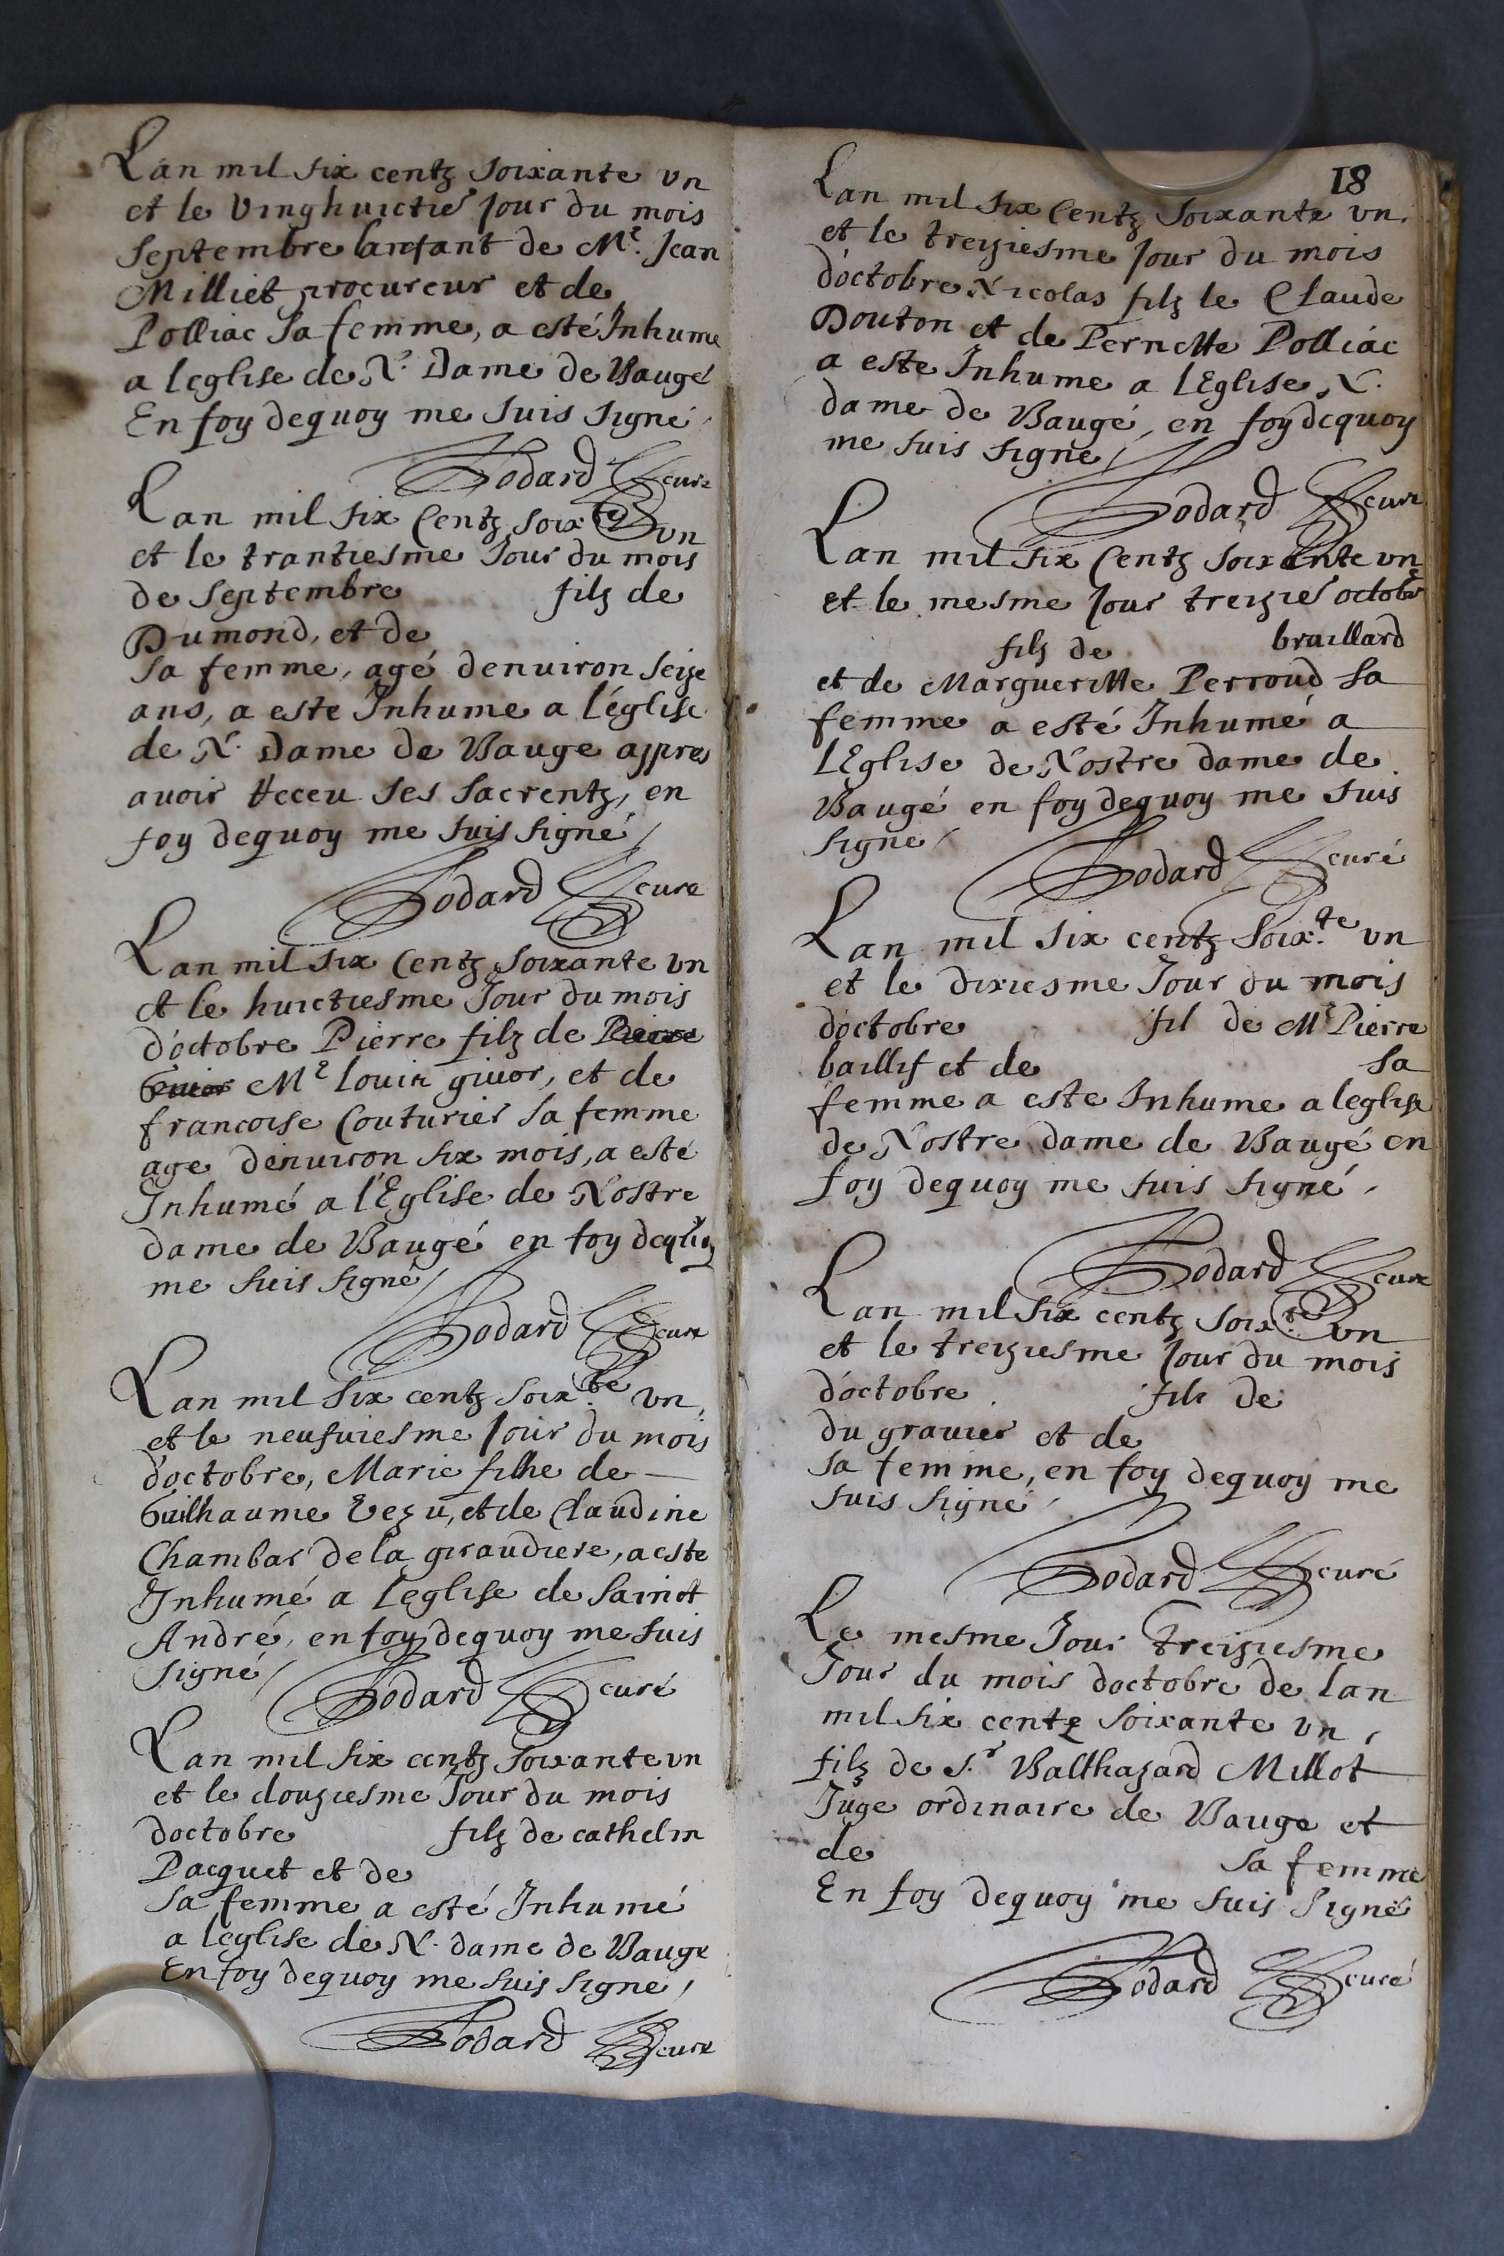 Lan mil six centz soixante un
et le vinghuictie Jour du mois
septembre lanfant de Me. Jean
Milliet procureur et de
Polliac sa femme, a esté Inhume
a leglise de N. Dame de Baugé
En foy dequoy me suis signé
Godard curé
Lan mil six Centz soixte un
et le trantiesme Jour du mois
de septembre filz de
Dumond, et de
sa femme, agé denuiron seize
ans, a este Inhume a l'église
de N. Dame de Bauge appres
auoir Receu ses sacrentz, en
foy dequoy me suis signé
Godard cure
Lan mil six Centz soixante un
et le huictiesme Jour du mois
d'octobre Pierre filz de Pierre
Guior Me Louir giuor, et de
francoise Couturier sa femme
age denuiron six mois, a esté
Inhumé a l'Eglise de Nostre
dame de Baugé en foy dequoy
me suis signé
Godard cure
Lan mil six centz soix.te un,
et le neufuiesme Jour du mois
d'octobre, Marie filhe de
Guilhaume Vezu, et de Claudine
Chambar de la giraudiere, a este
Inhumé a leglise de sainct
André, en foy dequoy me suis
signé
Godard curé
Lan mil six centz soixante un
et le douziesme Jour du mois
doctobre filz de cathelin
Pacquet et de
sa femme a esté Inhumé
a leglise de N. dame de Bauge
En foy dequoy me suis signe,
Godard cure
18
Lan mil six Centz soixante un.
et le treziesme Jour du mois
d'octobre Nicolas filz le Claude
Douton et de Pernette Polliac
a este Inhume a lEglise N.
dame de Baugé, en foy dequoy
me suis signe
Godard cure
Lan mil six Centz soixante un
et le mesme Jour treizie octobre
filz de braillard
et de Margueritte Perroud sa
femme a esté Inhumé a
lEglise de Nostre dame de
Baugé en foy dequoy me suis
signe
Godard curé
Lan mil six centz soix.te un
et le dixiesme Jour du mois
d'octobre fil de Me Pierre
baillif et de sa
femme a este Inhume a leglise
de Nostre dame de Baugé en
foy dequoy me suis signé.
Godard cure
Lan mil six centz soix.te un
et le treiziesme Jour du mois
d'octobre filz de
du grauier et de
sa femme, en foy dequoy me
suis signé
Godard curé
Le mesme Jour treiziesme
Jour du mois doctobre de lan
mil six centz soixante un,
filz de S.r Balthazard Millot
Juge ordinaire de Bauge et
de sa femme
En foy dequoy me suis signé
Godard curé